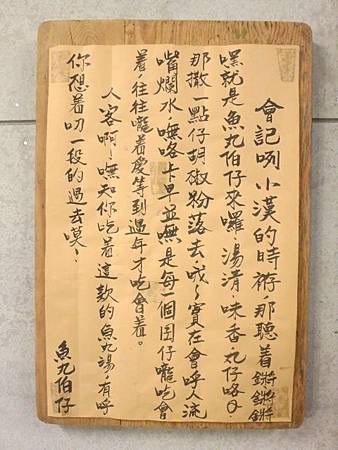 會記咧小漢的時術,那聽着鏘鏘鏘
嘿就是魚丸伯仔來囉,湯清,味香,丸仔咯Q,
那撒一點仔胡椒粉落去,哦,實在會呼人流
嘴爛水,嘸咯卡早並嘸是每一個囝仔攏吃會
着,往往攏着愛等到過年才吃會着。
人客啊,嘸知你吃着這款的魚丸湯,有呼
你想着叨一段的過去嘸,
魚丸伯仔